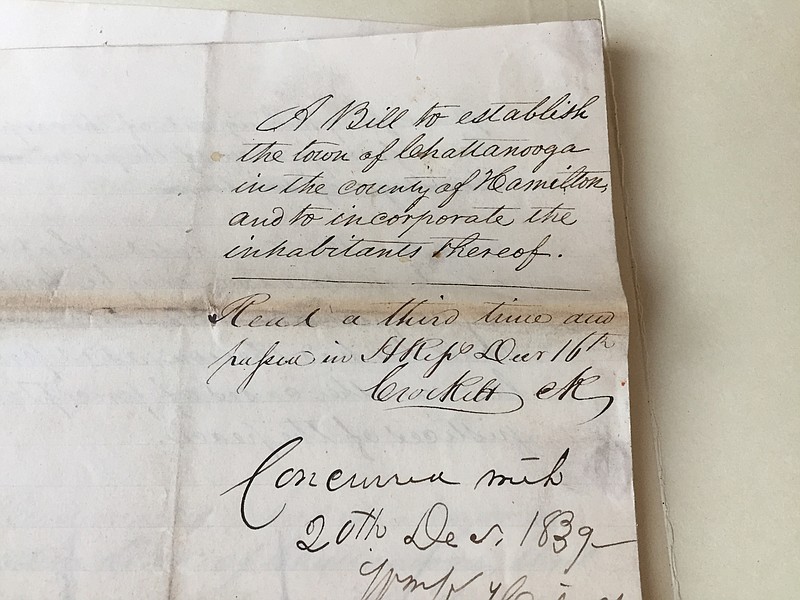 A Bill to establish
the town of Chattanooga
in the county of Hamilton,
and to incorporate the
inhabitants thereof.
Read a third time and
passed in H Reps Decr 16th
Crockett Ck
Concurred with
20th Dec. 1839